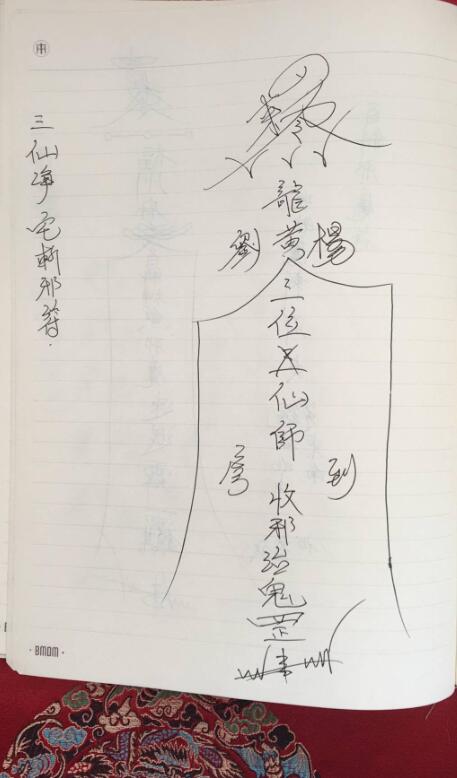 三仙净宅斩邪符.
龍
劉黄楊
三位
仙師
到
收邪治鬼罡
BMDM